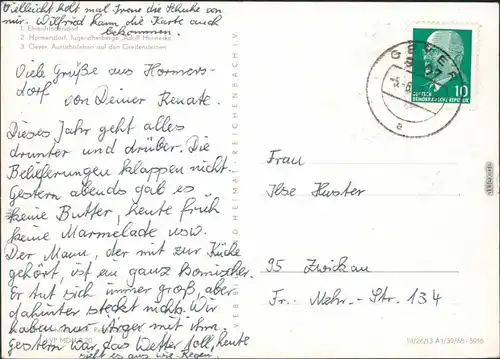 Vielleicht holt mal Irene die Schuhe von
mir. Wilfried kann die Karte auch
bekommen.
1. Ehrenfriedersdorf
2. Hormersdorf, Jugendherberge „Adolf Hennecke“
3. Geyer, Aussichtsfelsen auf den Greifensteinen
Viele Grüße aus Hormers-
dorf
von Deiner Renate.
Dieses Jahr geht alles
drunter und drüber. Die
Belieferungen klappen nicht.
Gestern abends gab es
keine Butter, heute früh
keine Marmelade usw.
Der Mann, der mit zur Küche
gehört, ist ein ganz komischer.
Er tut sich immer groß, aber
dahinter steckt nichts. Wir
haben nur Ärger mit ihm.
Gestern war das Wetter toll, heute
sieht es aus wie Regen.
VERLAG BILD UND HEIMAT REICHENBACH I. V.
GEYER
10
DEUTSCHE
DEMOKRATISCHE REPUBLIK
a
Frau
Ilse Huster
95 Zwickau
Fr.-Mehr.-Str. 134
EVP MDN 0,20